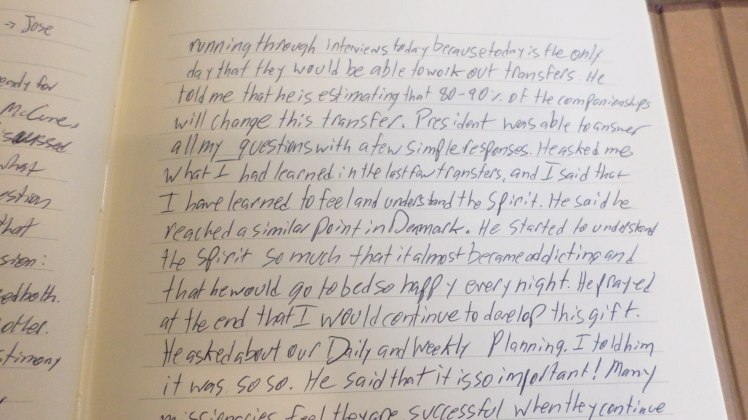 → Jose
eady for
McCune,
ssed
what
estion
that
ssion:
ed both.
other.
stimony
running through interviews today because today is the only
day that they would be able to work out transfers. He
told me that he is estimating that 80-90% of the companionships
will change this transfer. President was able to answer
all my questions with a few simple responses. He asked me
what I had learned in the last few transfers, and I said that
I have learned to feel and understand the Spirit. He said he
reached a similar point in Denmark. He started to understand
the Spirit so much that it almost became addicting and
that he would go to bed so happy every night. He prayed
at the end that I would continue to develop this gift.
He asked about our Daily and Weekly Planning. I told him
it was so so. He said that it is so important! Many
missionaries feel they are successful when they continue